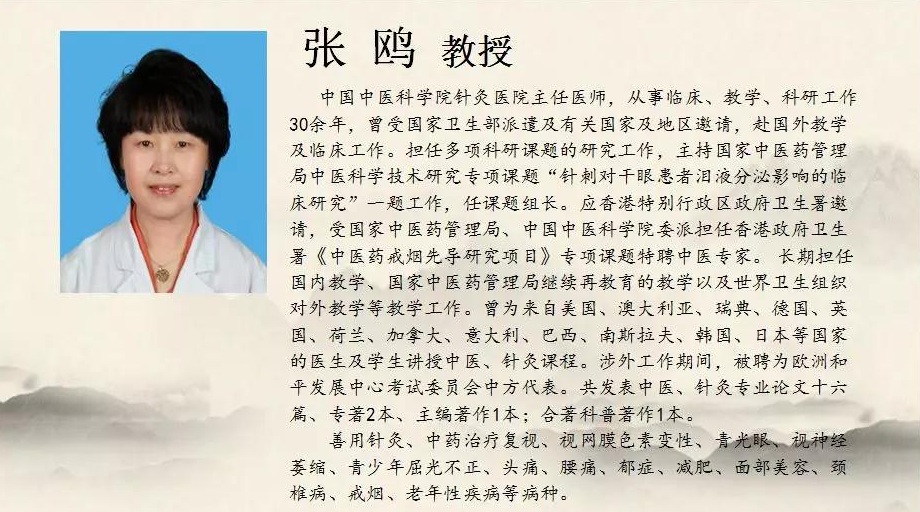 张 鸥 教授
中国中医科学院针灸医院主任医师，从事临床、教学、科研工作
30余年，曾受国家卫生部派遣及有关国家及地区邀请，赴国外教学
及临床工作。担任多项科研课题的研究工作，主持国家中医药管理
局中医科学技术研究专项课题“针刺对干眼患者泪液分泌影响的临
床研究”一题工作，任课题组长。应香港特别行政区政府卫生署邀
请，受国家中医药管理局、中国中医科学院委派担任香港政府卫生
署《中医药戒烟先导研究项目》专项课题特聘中医专家。 长期担任
国内教学、国家中医药管理局继续再教育的教学以及世界卫生组织
对外教学等教学工作。曾为来自美国、澳大利亚、瑞典、德国、英
国、荷兰、加拿大、意大利、巴西、南斯拉夫、韩国、日本等国家
的医生及学生讲授中医、针灸课程。涉外工作期间，被聘为欧洲和
平发展中心考试委员会中方代表。共发表中医、针灸专业论文十六
篇、专著2本、主编著作1本；合著科普著作1本。
善用针灸、中药治疗复视、视网膜色素变性、青光眼、视神经
萎缩、青少年屈光不正、头痛、腰痛、郁症、减肥、面部美容、颈
椎病、戒烟、老年性疾病等病种。